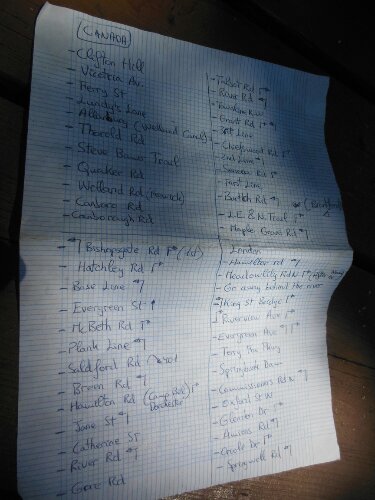 CANADA
- Clifton Hill
- Victoria Av.
- Ferry St
- Lundy's Lane
- Allanburg (Welland Canal)
- Thorold Rd
- Steve Bauer Trail
- Quaker Rd
- Welland Rd (Fenwick)
- Canboro Rd
- Canborough Rd
- Talbot Rd
- River Rd
- Townline
- Grant Rd
- 3rd Line
- Chiefswood Rd
- 2nd Line
- Seneca Rd
- First Line
- Burtch Rd
- L.E. & N. Trail
- Maple Grove Rd
- Bishopsgate Rd (dst)
- Hatchley Rd
- Base Line
- Evergreen St
- McBeth Rd
- Plank Line
- Salford Rd
- Breen Rd
- Hamilton Rd Dorchester
- Jane St
- Catherine St
- River Rd
- Gore Rd
London
- Hamilton rd
- Meadowlily Rd N
- Go away behind the river
- King St Bridge
- Riverview Ave
- Evergreen Ave
- Terry Fox Pkwy
- Springbank Dr
- Commissioners Rd W
- Oxford St W
- Gideon Dr
- Amiens Rd
- Oriole Dr
- Springwell Rd